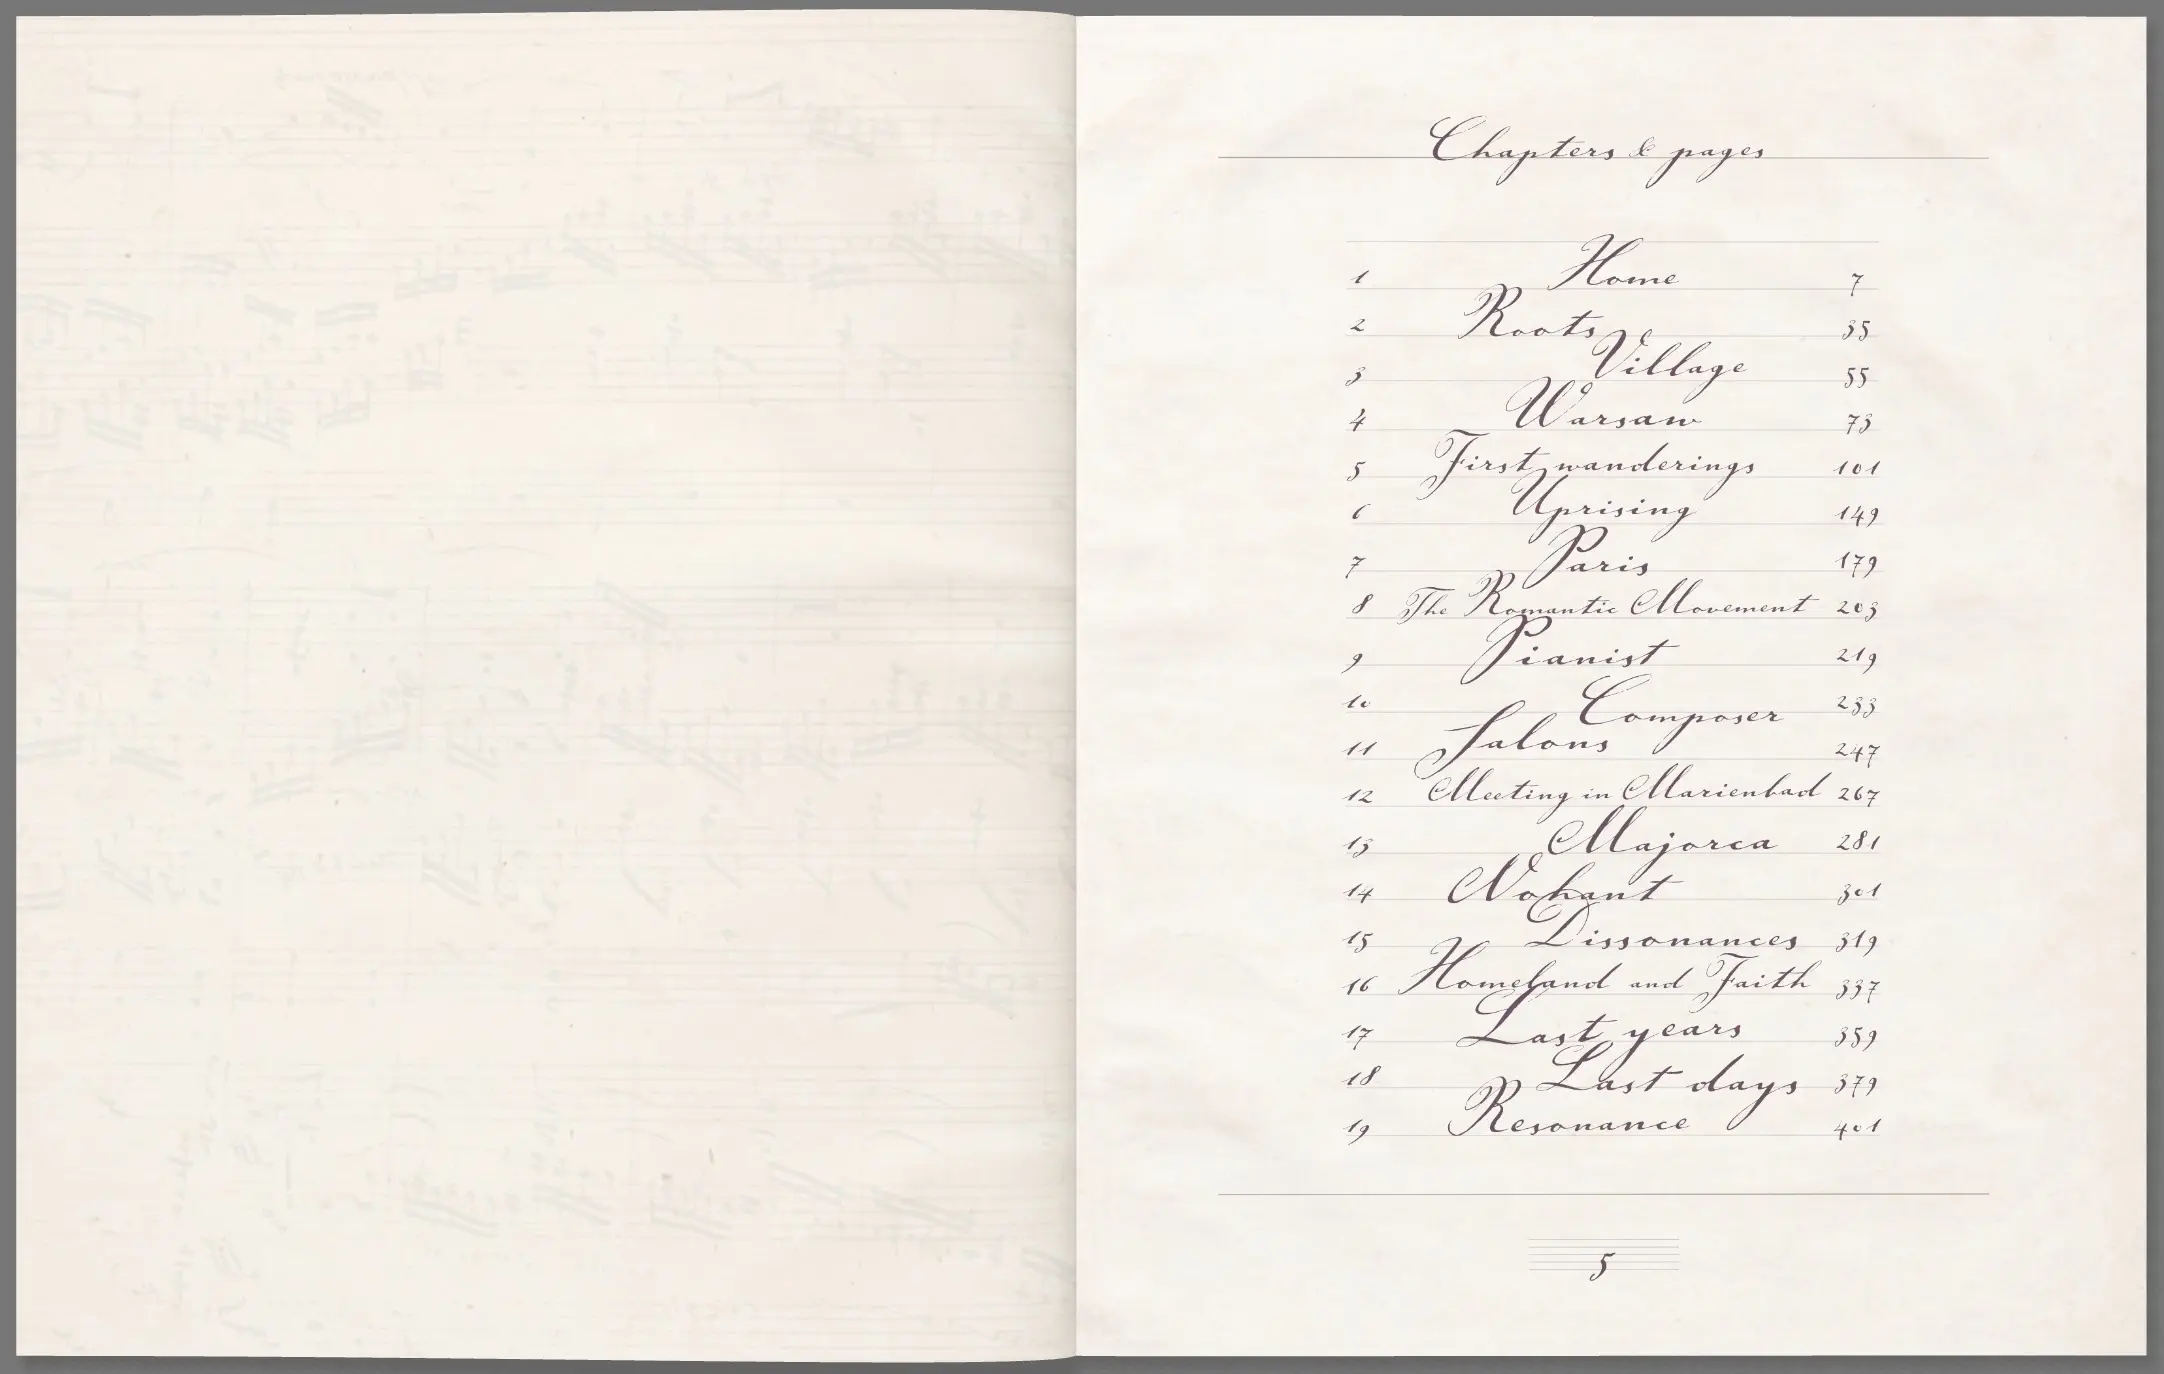 Chapters & pages
1 Home 7
2 Roots 35
3 Village 55
4 Warsaw 73
5 First wanderings 101
6 Uprising 149
7 Paris 179
8 The Romantic Movement 203
9 Pianist 219
10 Composer 233
11 Salons 247
12 Meeting in Marienbad 267
13 Majorca 281
14 Nohant 301
15 Dissonances 319
16 Homeland and Faith 337
17 Last years 359
18 Last days 379
19 Resonance 401
5